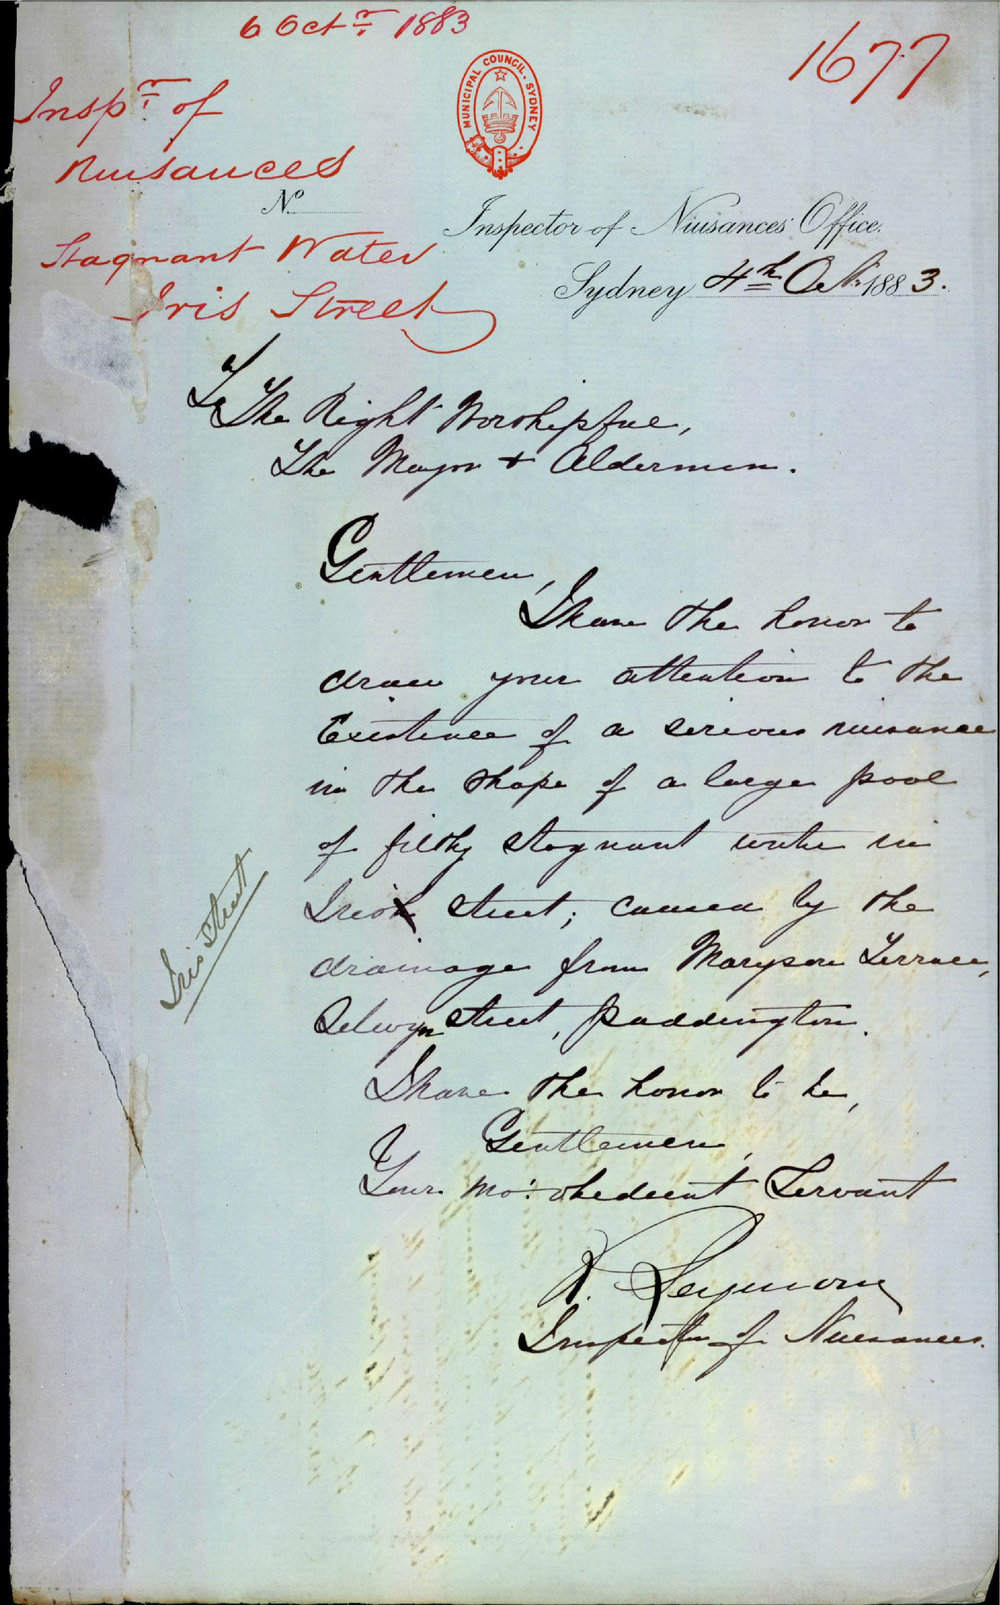 6 Octr. 1883
1677
Inspr. of
Nuisances
MUNICIPAL COUNCIL. SYDNEY
No
Inspector of Nuisances' Office.
Stagnant Water
Iris Street
Sydney 4th Oct. 1883.
To The Right Worshipful,
The Mayor & Aldermen.
Gentlemen,
I have the honor to
draw your attention to the
Existence of a serious nuisance
in the shape of a large pool
of filthy stagnant water in
Iris Street; caused by the
drainage from Maryson Terrace,
Selwyn Street, Paddington.
Iris Street
I have the honor to be,
Gentlemen,
Your mo: obedient Servant
R. Seymour
Inspector of Nuisances.